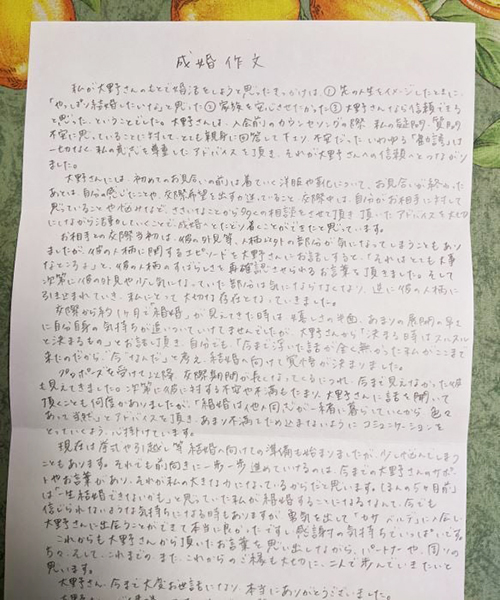 成婚作文
私が大野さんのもとで婚活をしようと思ったきっかけは、①先の人生をイメージしたときに、
「やっぱり結婚したいな」と思った②家族を安心させたかった③大野さんなら信頼できる
と思った、ということでした。大野さんは、入会前のカウンセリングの際、私の疑問、質問、
不安に思っていることに対して、とても親身に回答して下さり、不安だった、いわゆる「勧誘」は
一切なく、私の意志を尊重したアドバイスを頂き、それが大野さんへの信頼へとつながり
ました。
大野さんには、初めてのお見合いの前には着ていく洋服や
お見合いが終わった
あとは、自分の感じたことや、交際希望を出すか否か、交際中は、自分がお相手に対して
思っていることや悩みなど、ささいなことから多くの相談をさせて頂き、頂いたアドバイスを大切
にしながら活動していくことで、成婚へとたどり着くことができたと思っています。
お相手との交際当初は、彼の外見等、人柄以外の部分が気になってしまうこともあり
ましたが、彼の人柄に関するエピソードを大野さんにお話しすると、「それはとても大事
なところよ」と、彼の人柄のすばらしさを再確認させられるお言葉を頂きました。そして
次第に彼の外見や少し気になっていた部分は気にならなくなり、逆に彼の人柄に
引き込まれていき、私にとって大切な存在となっていきました。
交際から約1ヶ月で「結婚」が見えてきた時は、嬉しさの半面、あまりの展開の早さ
に自分自身の気持ちが追いついていけてませんでしたが、大野さんから「決まる時はスルスル
と決まるもの」とお話し頂き、自分でも「今まで浮いた話が全く無かった私がここまで
来たのだから、「今」なんだ」と考え、結婚へ向けて覚悟が決まりました。
プロポーズを受けて以降、交際期間が長くなってくるにつれ、今まで見えなかった彼
も見えてきました。次第に彼に対する不安や不満もたまり、大野さんに話を聞いて
頂くことも何度かありましたが、「結婚は他人同士が一緒に暮らしていくから、色々
あって当然」とアドバイスを頂き、あまり不満をため込まないようにコミュニケーションを
とっていくよう、心掛けています。
現在は挙式や引越し等、結婚の向けての準備も始まりましたが、少し悩んでしまう
こともあります。それでも前向きに一歩一歩進めていけるのは、今までの大野さんのサポー
トやお言葉があり、それが私の大きな力になっているからだと思います。ほんの5ヶ月前
は「一生結婚できないかも」と思っていた私が、結婚することになるなんて、今でも
信じられないような気持ちになる時もありますが、勇気を出して
に入会し、
大野さんに出会うことができて、本当に良かったですし、感謝の気持ちでいっぱいです。
これからも大野さんから頂いたお言葉を思い出しながら、パートナーや、周りの
方々、そして、これまでの、また、これからのご縁も大切に、二人で歩んでいきたいと
思います。
大野さん、今まで大変お世話になり、本当にありがとうございました。